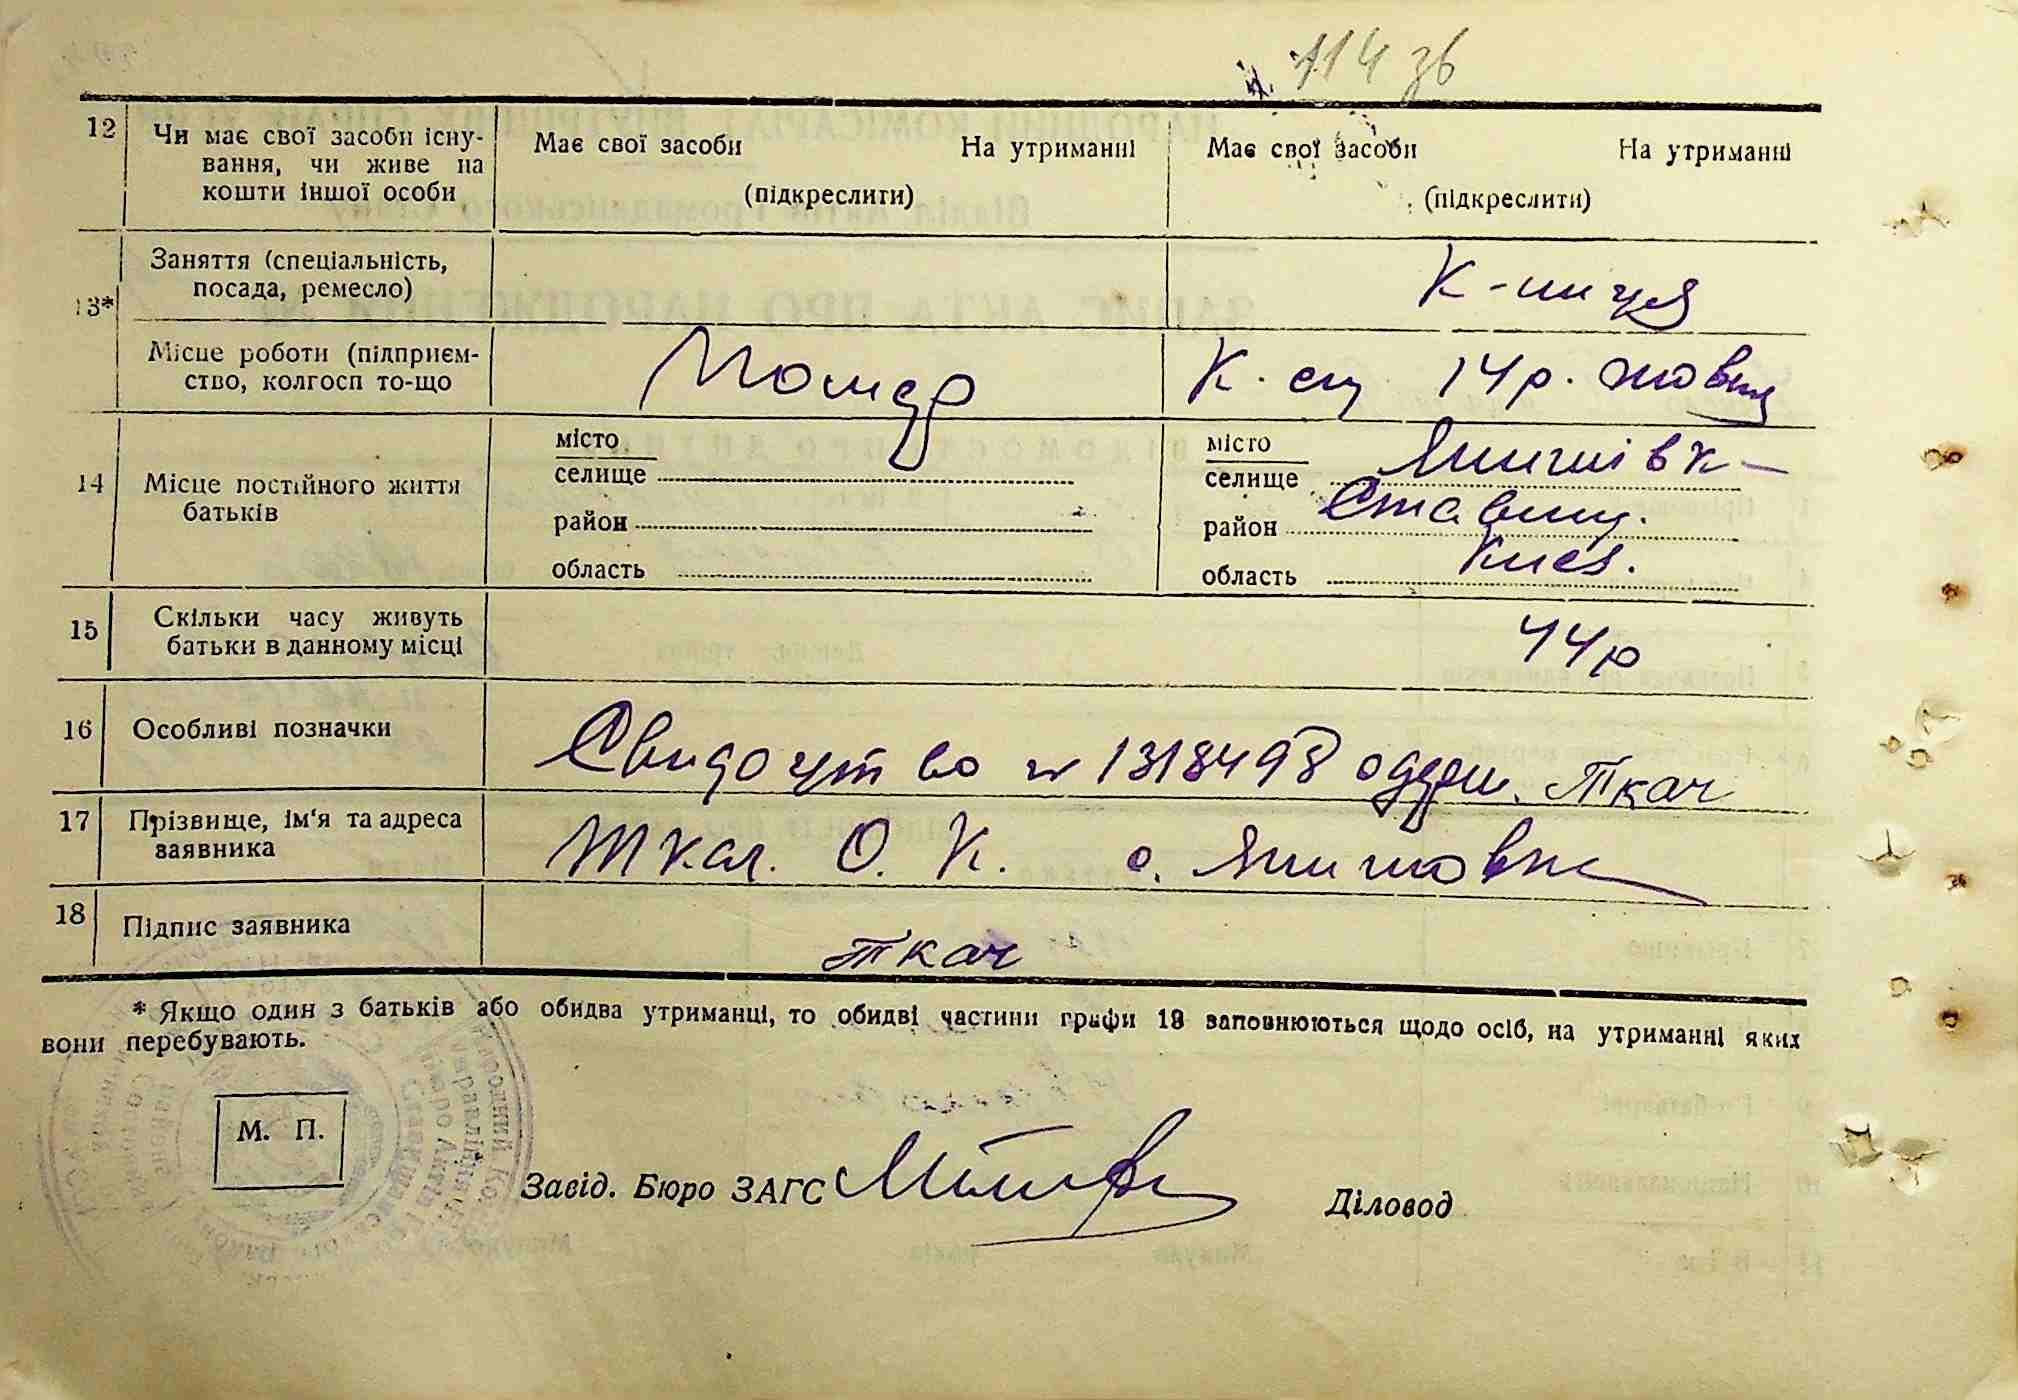 114 зв
12 Чи має свої засоби існу- Має свої засоби На утриманні Має свої засоби На утриманні
вання, чи живе на
кошти іншої особи (підкреслити) (підкреслити)
Заняття (спеціальність, К-ниця
13* посада, ремесло)
Місце роботи (підприєм- Помер К. 14 р. жовтня
ство, колгосп то-що
14 Місце постійного життя місто місто Янишівк-
батьків селище селище
район район Ставищ.
область область Київ.
15 Скільки часу живуть 44 р
батьки в данному місці
16 Особливі позначки Свидоцтво № 1318498 одерж. Ткач
17 Прізвище, ім'я та адреса Ткач. О. К. с. Янишовка
заявника
18 Підпис заявника Ткач
* Якщо один з батьків або обидва утриманці, то обидві частини графи 13 заповнюються щодо осіб, на утриманні яких
вони перебувають.
М. П.
Завід. Бюро ЗАГС Діловод